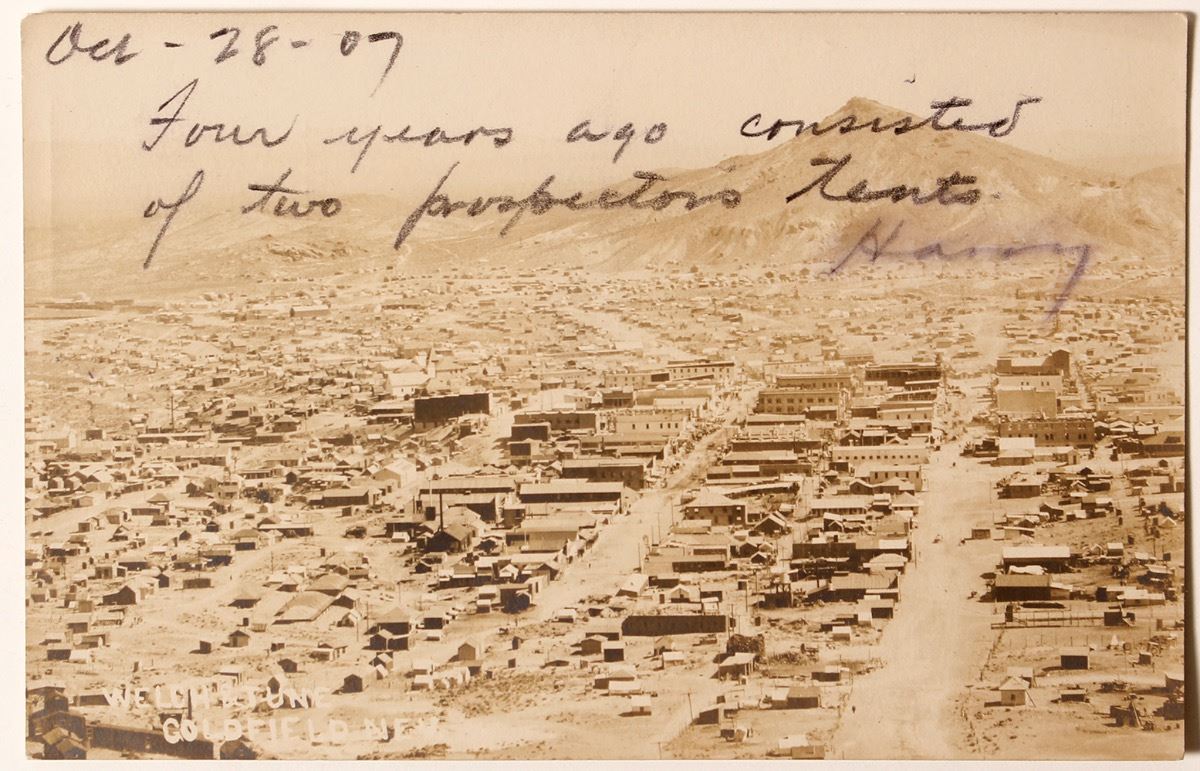 Oct - 28 - 07
Four years ago consisted
of two prospectors tents.
Harry
WELCH & JUNE
GOLDFIELD NEV